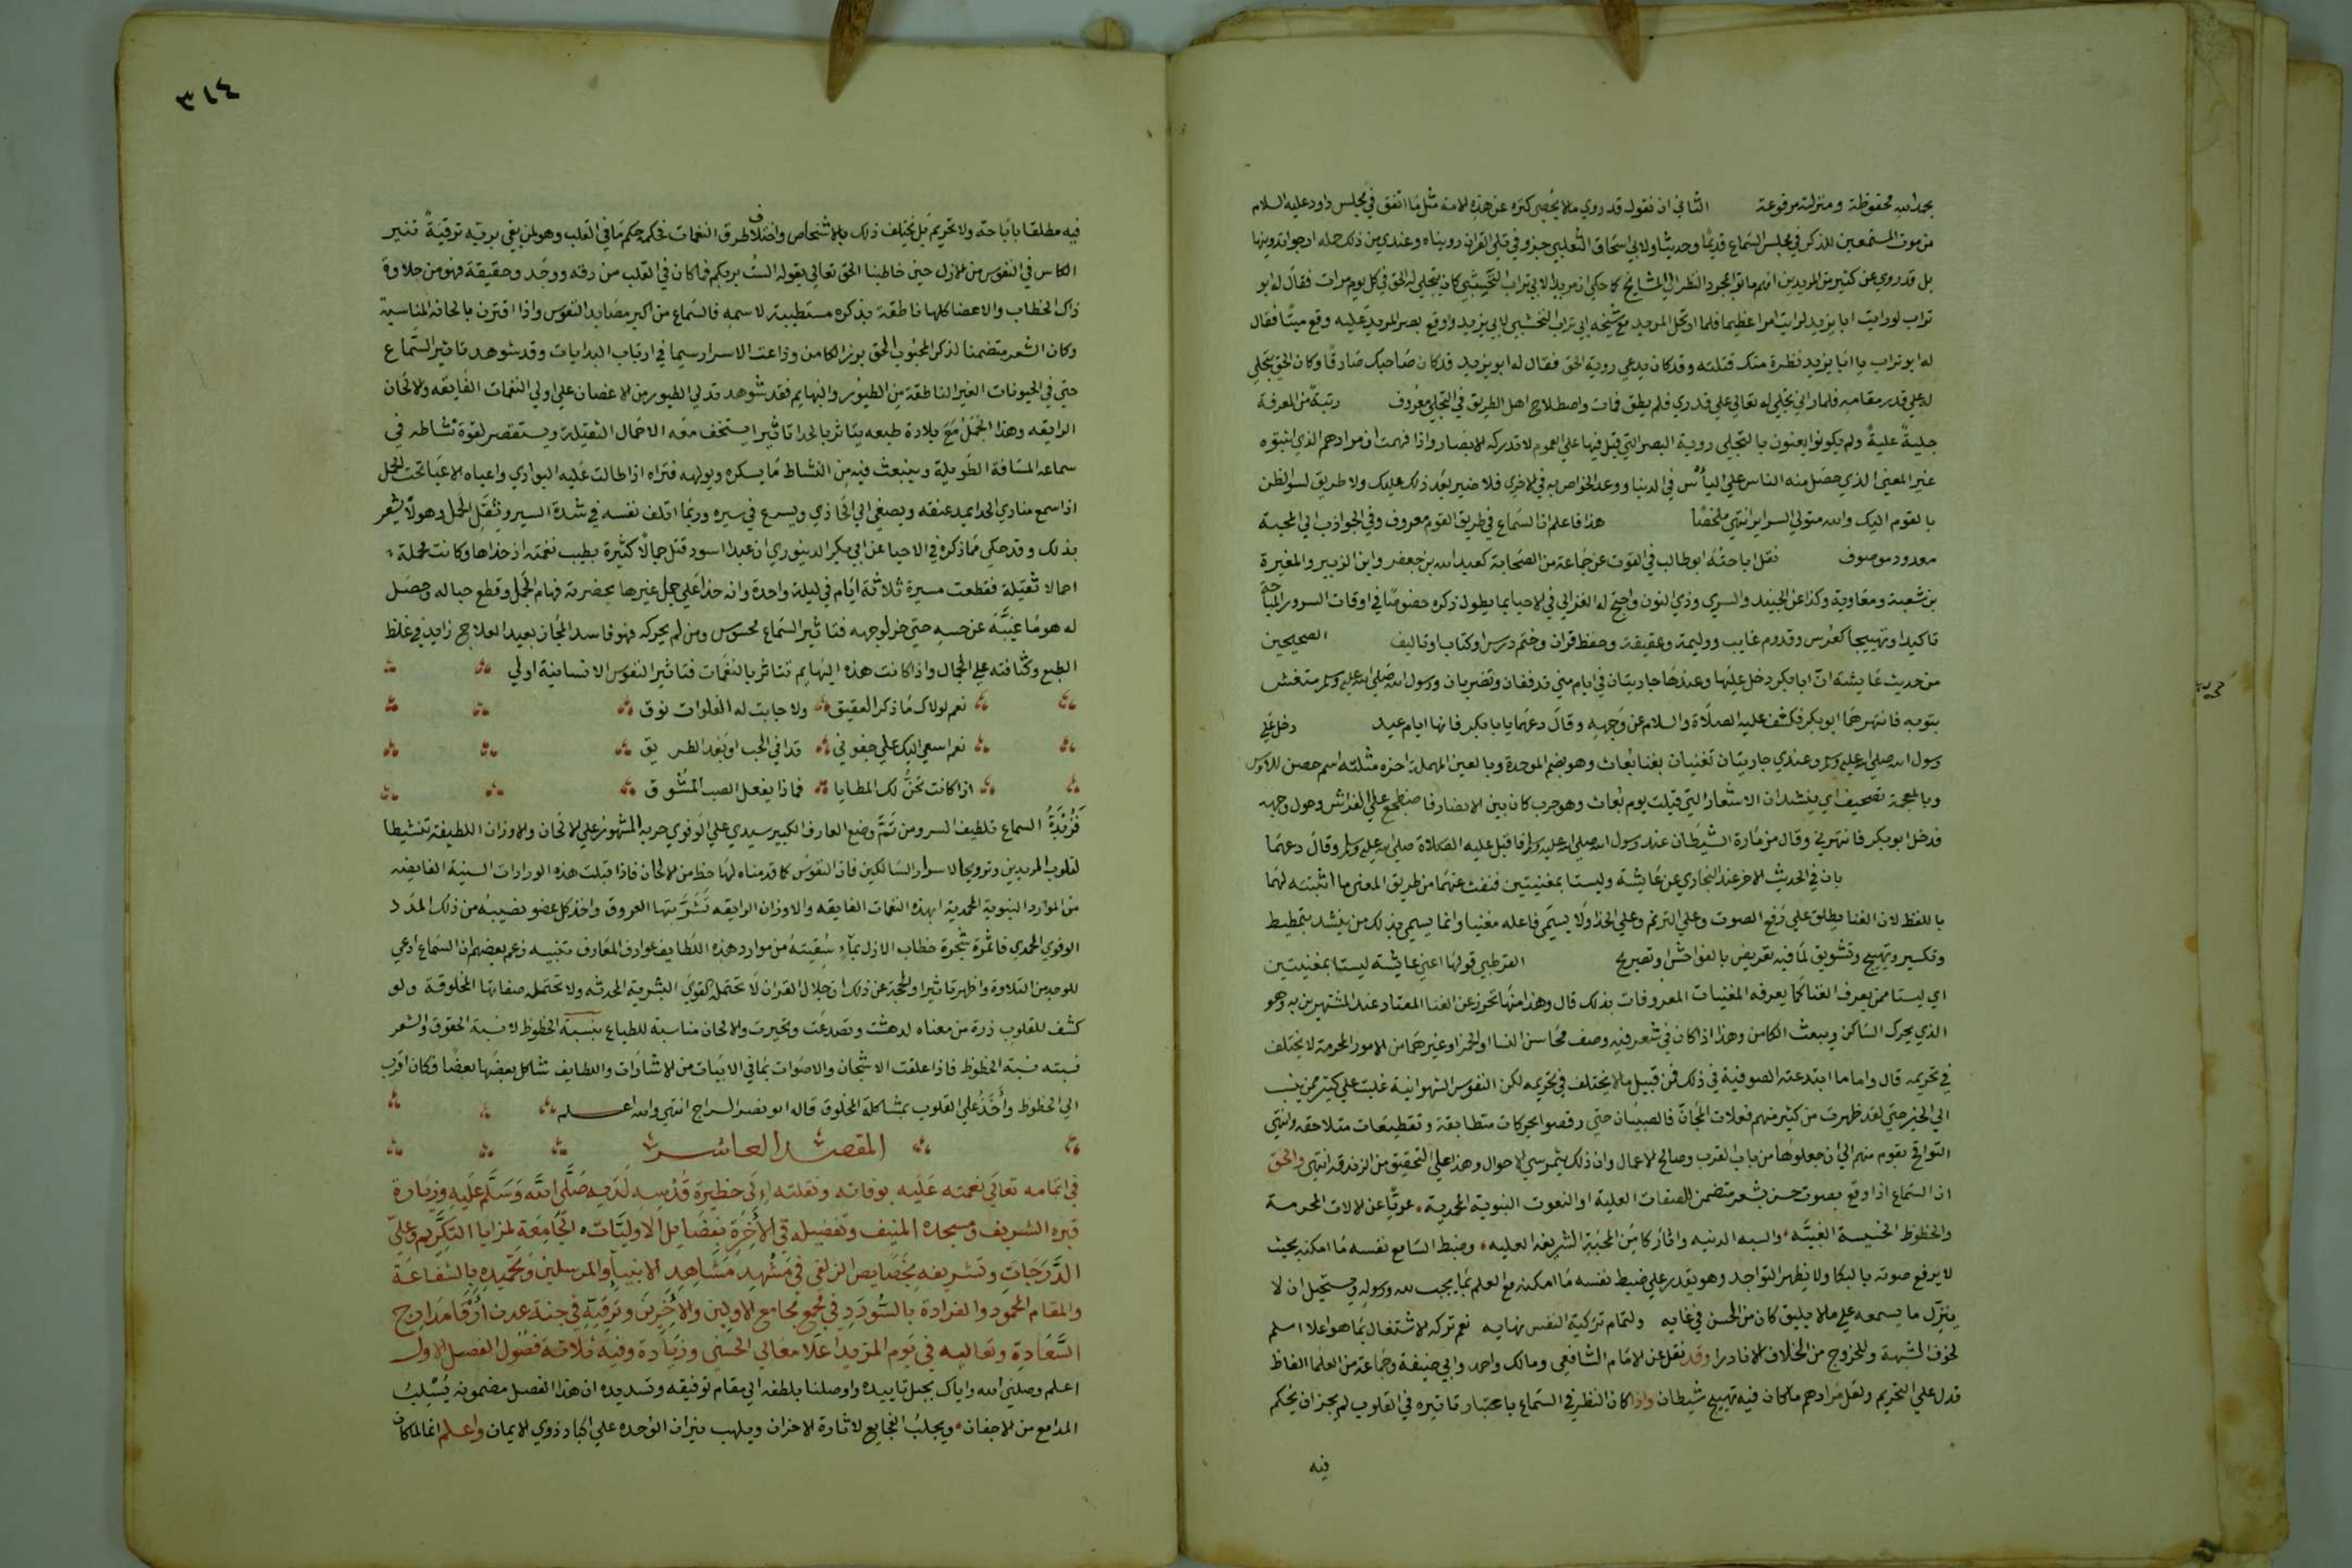 بحمد الله محفوظة ومنزلته مرفوعة الثاني ان نقول قد روي ما لا يحصى كثره عن هذه الامة مثل ما اتفق في مجلس داود عليه السلام
من موت المستمعين للذكر في مجلس السماع قديما وحديثا ولابي اسحاق الثعلبي جزو في قتلى القران رويناه وعندي من ذلك جمله ارجوا تدوينها
بل قد روي عن كثير من المريدين انهم ماتوا بمجرد النظر الي المشايخ كما حكي ان مريدا لابي تراب النخشبي كان يتجلى له الحق في كل يوم مرات فقال له ابو
تراب لو رايت ابا يزيد لرايت امرا عظيما فلما ارتحل المريد مع شيخه ابي تراب النخشبي لابي يزيد ووقع بصر المريد عليه وقع ميتا فقال
له ابو تراب يا ابا يزيد نظرة منك قتلته وقد كان يدعي روية الحق فقال له ابو يزيد قد كان صاحبك صادقا وكان الحق يتجلي
له علي قدر مقامه فلما راني تجلي له تعالي علي قدري فلم يطق فمات واصطلاح اهل الطريق في التجلي معروف رتبة من المعرفة
جلية علية ولم يكونوا يعنون بالتجلي روية البصر التي قيل فيها علي العموم لا تدركه الابصار واذا فهمت ان مرادهم الذي اثبتوه
غير المعني الذي حصل منه الناس علي الياس في الدنيا ووعد الخواص به في الاخرى فلا ضير بعد ذلك عليك ولا طريق لسو الظن
بالقوم اليك والله متولي السراير انتهي ملخصا هذا فاعلم ان السماع في طريق القوم معروف وفي الجواذب الي المحبة
معدود موصوف نقل اباحته ابو طالب في القوت عن جماعة من الصحابة كعبد الله بن جعفر وابن الزبير والمغيرة
بن شعبة ومعاوية وكذا عن الجنيد والسري وذي النون واحتج له الغزالي في الاحيا بما يطول ذكره خصوصا في اوقات السرور المباحة
تاكيدا وتهييجا كعرس وقدوم غايب ووليمة وعقيقة وحفظ قران وختم درس او كتاب او تاليف الصحيحين
من حديث عايشة ان ابا بكر دخل عليها وعندها جاريتان في ايام مني تدففان وتضربان ورسول الله صلي الله عليه وسلم متغش
بثوبه فانتهرهما ابو بكر فكشف عليه الصلاة والسلام عن وجهه وقال دعهما يا ابا بكر فانها ايام عيد دخل علي
رسول الله صلي الله عليه وسلم وعندي جاريتان تغنيان بغنا بعاث وهو بضم الموحدة وبالعين المهملة اخره مثلثه اسم حصن للاوس
وبالمعجمة تصحيف اي ينشدان الاشعار التي قيلت يوم بعاث وهو حرب كان بين الانصار فاضطجع علي الفراش وحول وجهه
فدخل ابو بكر فانتهرني وقال مزمارة الشيطان عند رسول الله صلي الله عليه وسلم فاقبل عليه الصلاة صلي الله عليه وسلم وقال دعهما
بان في الحديث الاخر عند البخاري عن عايشة وليستا بمغنيتين فنفت عنهما من طريق المعني ما اثبتته لهما
باللفظ لان الغنا يطلق علي رفع الصوت وعلي الترنم وعلي الحدا ولا يسمى فاعله مغنيا وانما يسمي بذلك من ينشد بتمطيط
وتكسير وتهييج وتشويق لما فيه تعريض بالفواحش او تصريح القرطبي قولها اعني عايشة ليستا بمغنيتين
اي ليستا ممن يعرف الغنا كما يعرفه المغنيات المعروفات بذلك قال وهذا منها تحرز عن الغنا المعتاد عند المشتهرين به وهو
الذي يحرك الساكن ويبعث الكامن وهذا اذا كان في شعر فيه وصف محاسن النسا او الخمر او غيرهما من الامور المحرمة لا يختلف
في تحريمه قال واما ما ابتدعته الصوفية في ذلك فمن قبيل ما لا يختلف في تحريمه لكن النفوس الشهوانية غلبت علي كثير ممن ينسب
الي الخير حتي لقد ظهرت من كثير منهم فعلات المجان فالصبيان حتي رقصوا بحركات متطابقة وتقطيعات متلاحقه وانتهي
التواقح بقوم منهم الي ان جعلوها من باب القرب وصالح الاعمال وان ذلك يثمر سني الاحوال وهذا علي التحقيق من الزندقه انتهي والحق
ان السماع اذا وقع بصوت حسن بشعر متضمن للصفات العلية او النعوت النبوية المحمدية عريا عن الالات المحرمة
والحظوظ الخسيسة الغبية والسبه الدنيه واثار كامن المحبة الشريفه العليه وضبط السامع نفسه ما امكنه بحيث
لا يرفع صوته بالبكا ولا يظهر التواجد وهو يقدر علي ضبط نفسه ما امكنه مع العلم بما يجب لله ورسوله ويستحيل ان لا
ينزل ما يسمعه علي ما لا يليق كان من الحسن في غايه ولتمام تزكية النفس نهايه نعم تركه للاشتغال بما هو اعلا اسلم
لخوف الشبهة وللخروج من الخلاف الا نادرا وقد نقل عن الامام الشافعي ومالك واحمد وابي حنيفة وجماعة من العلما الفاظ
تدل علي التحريم ولعل مرادهم ما كان فيه تهييج شيطان واذا كان النظر في السماع باعتبار تاثيره في القلوب لم يجز ان يحكم
فيه
٣١٤
فيه مطلقا باباحة ولا تحريم بل يختلف ذلك بالاشخاص واختلاف طرق النغمات فحكمه حكم ما في القلب وهو لمن يقي بربه ترقية تثير
الكامن في النفوس من الازل حين خاطبنا الحق تعالي بقوله الست بربكم فما كان في القلب من رقه ووجد وحقيقة فهو من حلاوة
ذاك الخطاب والاعضا كلها ناطقة بذكره مستطيبة لاسمه فالسماع من اكبر مصايد النفوس واذا اقترن بالحانه المناسبة
وكان الشعر متضمنا لذكر المحبوب الحق برز الكامن وذاعت الاسرار سيما في ارباب البدايات وقد شوهد تاثير السماع
حتي في الحيوانات الغير الناطقة من الطيور والبهايم فقد شوهد تدلي الطيور من الاغصان علي اولي النغمات الفايقه والالحان
الرايقه وهذا الجمل مع بلادة طبعه يتاثر بالحدا تاثيرا يستخف معه الاحمال الثقيلة ويستقصر لقوة نشاطه في
سماعه المسافة الطويلة وينبعث فيه من النشاط ما يسكره ويولهه فتراه اذا طالت عليه البوادي واعياه الاعيا تحت الحمل
اذا سمع منادي الحدا يمد عنقه ويصغي الي الحادي ويسرع في سيره وربما اتلف نفسه في شدة السير وثقل الحمل وهو لا يشعر
بذلك وقد حكي مما ذكره في الاحيا عن ابي بكر الدينوري ان عبدا اسود قتل جمالا كثيرة بطيب نغمته اذ حداها وكانت محملة
احمالا ثقيلة فقطعت مسيرة ثلاثة ايام في ليلة واحدة وانه حدا علي جمل غيرها بحضرته فهام الجمل وقطع حباله وحصل
له هو ما غيبه عن حسه حتي خر لوجهه فتاثير السماع محسوس ومن لم يحركه فهو فاسد المجاز بعيد العلاج زايد في غلظ
الطبع وكثافته علي الجمال واذا كانت هذه البهايم تتاثر بالنغمات فتاثير النفوس الانسانية اولي
نعم لولاك ما ذكر العقيق ولا جابت له الفلوات نوق
نعم اسعي اليك علي جفوني تداني الحب او بعد الطريق
اذا كانت تحن لك المطايا فماذا يفعل الصب المشوق
فزبدة السماع تلطيف السر ومن ثم وضع العارف الكبير سيدي علي الوفوي حزبه المشهور علي الالحان والاوزان اللطيفة تنشيطا
لقلوب المريدين وترويحا لاسرار السالكين فان النفوس كما قدمناه لها حظ من الالحان فاذا قبلت هذه الواردات السنية الفايضه
من الموارد النبوية المحمدية بهذه النغمات الفايقه والاوزان الرايقه تشربتها العروق واخذ كل عضو نصيبه من ذلك المدد
الوفوي المحمدي فاثمرة شجرة خطاب الازل بماء سقيته من موارد هذه اللطايف عوارف المعارف تنبيه زعم بعضهم ان السماع ادعي
للوجد من التلاوة واظهر تاثيرا والحجة عن ذلك ان جلال القران لا تحتمله القوي البشرية المحدثه ولا تحتمله صفاتها المخلوقة ولو
كشف للقلوب ذرة من معناه لدهشت وتصدعت وتحيرت والالحان مناسبة للطباع بنسبة الحظوظ لا نسبة الحقوق والشعر
نسبته نسبة الحظوظ فاذا علقت الاشجان والاصوات بما في الابيات من الاشارات واللطايف شاكل بعضها بعضا وكان اقرب
الي الحظوظ وأخذ علي القلوب بمشاكلة المخلوق قاله ابو نصر السراج انتهي والله اعلم
المقصد العاشر
في اتمامه تعالي نعمته عليه بوفاته ونقلته الي حظيرة قدسه لديه صلي الله وسلم عليه وزيارة
قبره الشريف ومسجده المنيف وتفضيله في الاخرة بفضايل الاوليات الجامعة لمزايا التكريم وعلي
الدرجات وتشريفه بخصايص الزلفي في مشهد مشاهد الانبيا والمرسلين وتحميده بالشفاعة
والمقام المحمود وانفراده بالسودد في مجمع مجامع الاولين والاخرين وترقيه في جنة عدن ارقا مدارج
السعادة وتعاليه في يوم المزيد اعلا معالي الحسني وزيادة وفيه ثلاثة فصول الفصل الاول
اعلم وصلني الله واياك بحبل تاييده واوصلنا بلطفه الي مقام توفيقه وتسديده ان هذا الفصل مضمونه يسكب
المدامع من الاجفان ويجلب الفجايع لاثارة الاحزان ويلهب نيران الوحده علي اكباد ذوي الايمان واعلم انه لما كان